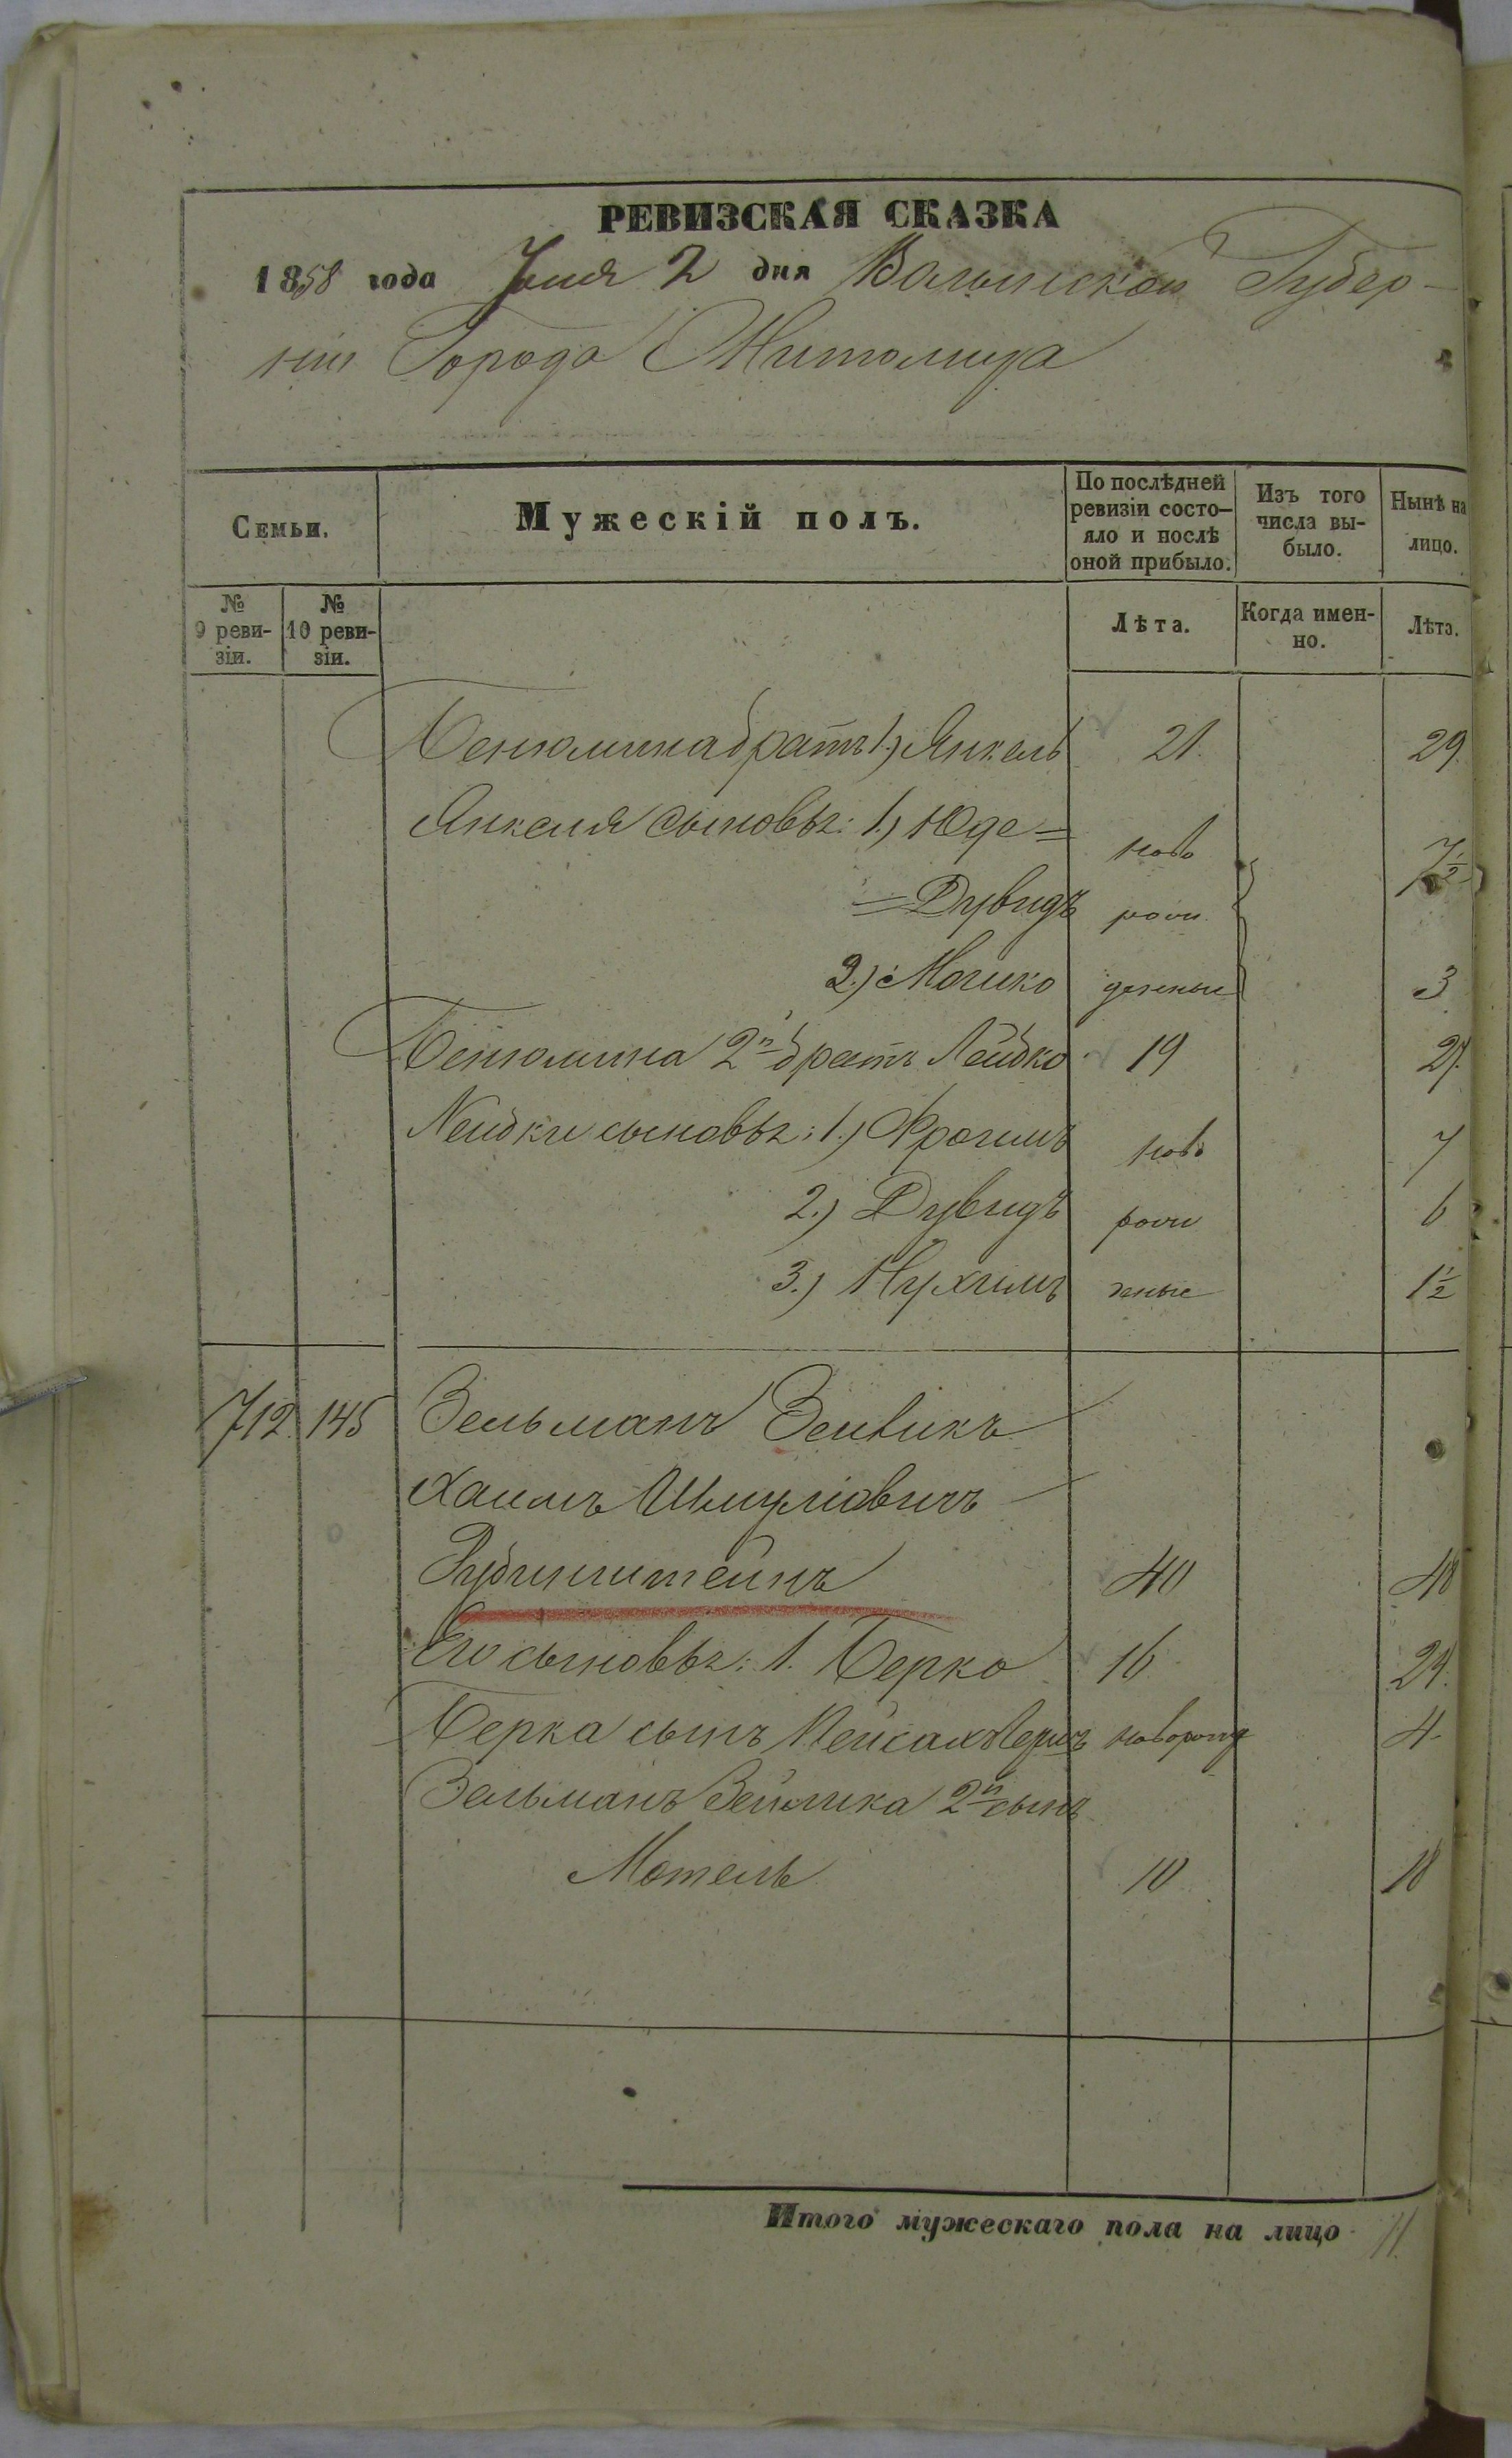 РЕВИЗСКАЯ СКАЗКА
1858 года Іюня 2 дня Волынской Губер-
ніи Города Житомира
Семьи.
Мужескій полъ.
По послѣдней ревизіи состо-яло и послѣ оной прибыло.
Изъ того числа вы-было.
Нынѣ на лицо.
№ 9 реви-зіи.
№ 10 реви-зіи.
Лѣта.
Когда имен-но.
Лѣта.
Бенюмина братъ 1.) Янкель 21. 29.
Янкеля сыновья: 1.) Юде= ново 7½
=Дувидъ рож
2.) Мошко денные 3
Бенюмина 2й братъ Лейбко 19 27.
Лейбки сыновья: 1.) Фроимъ ново 7
2.) Дувидъ рож 6
3.) Нухимъ нные 1½
712. 145 Зельманъ Зейликъ
Хаимъ Шмуліовичъ
Рубинштейнъ 40 48
Его сыновья: 1. Берко 16 24.
Берка сынъ Пейсах новорожд 4.
Зельманъ Зейлика 2й сынъ
Мотель 10 18
Итого мужескаго пола на лицо 11.